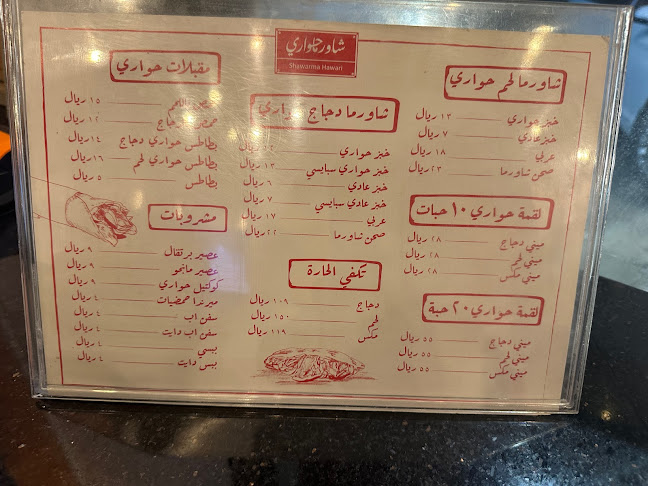 شاورما حواري
Shawarma Hawari
شاورما لحم حواري
خبز حواري ١٣ ريال
خبز عادي ٧ ريال
عربي ١٨ ريال
صحن شاورما ٢٣ ريال
لقمة حواري ١٠ حبات
ميني دجاج ٢٨ ريال
ميني لحم ٢٨ ريال
ميني مكس ٢٨ ريال
لقمة حواري ٢٠ حبة
ميني دجاج ٥٥ ريال
ميني لحم ٥٥ ريال
ميني مكس ٥٥ ريال
شاورما دجاج حواري
خبز حواري ريال
خبز حواري سبايسي ١٣ ريال
خبز عادي ٦ ريال
خبز عادي سبايسي ٧ ريال
عربي ١٧ ريال
صحن شاورما ٢٢ ريال
تكفي الحارة
دجاج ١٠٩ ريال
لحم ١٥٠ ريال
مكس ١١٩ ريال
مقبلات حواري
حمص باللحم ١٥ ريال
حمص دجاج ١٢ ريال
بطاطس حواري دجاج ١٤ ريال
بطاطس حواري لحم ١٦ ريال
بطاطس ٥ ريال
مشروبات
عصير برتقال ٩ ريال
عصير مانجو ٩ ريال
كوكتيل حواري ٩ ريال
ميرندا حمضيات ٤ ريال
سفن اب ٤ ريال
سفن اب دايت ٤ ريال
ببسي ٤ ريال
ببس دايت ٤ ريال